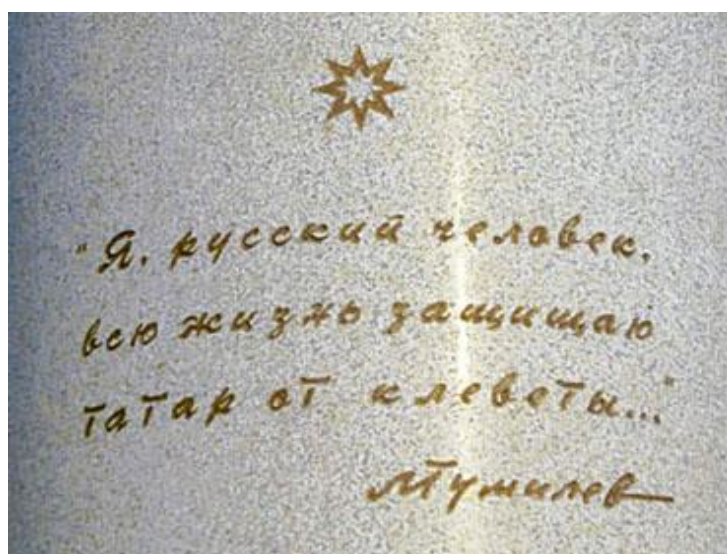 "Я, русский человек,
всю жизнь защищаю
татар от клеветы..."
ЛГумилев